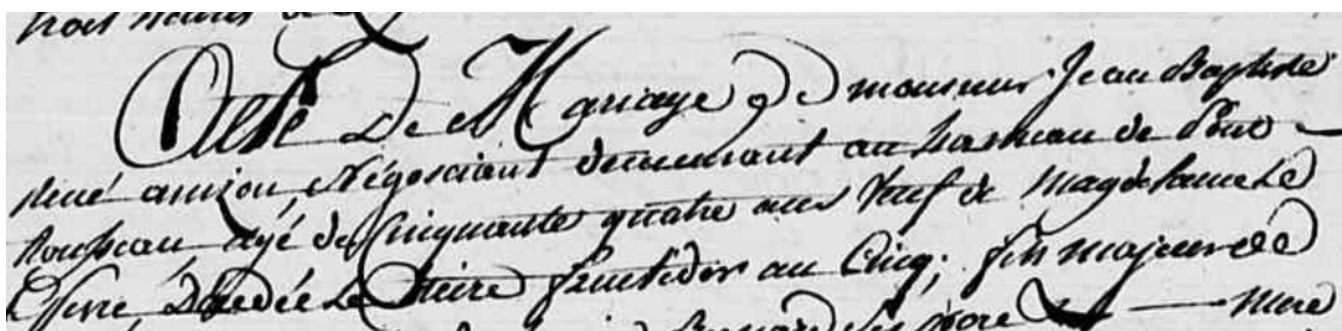 trois heures de
Acte De Mariage de monsieur Jean Baptiste
René amiou, Négociant demeurant au hameau de Pont
Rousseau, agé de Cinquante quatre ans Veuf de Magdelaine Le
décédée Le fructidor an Cinq; fils majeur de
père mere